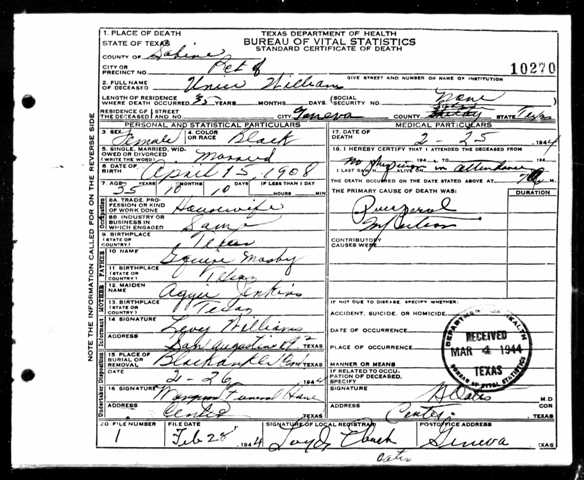 1. PLACE OF DEATH
STATE OF TEXAS
COUNTY OF Sabine
TEXAS DEPARTMENT OF HEALTH
BUREAU OF VITAL STATISTICS
STANDARD CERTIFICATE OF DEATH
CITY OR PRECINCT NO. Pct 8
GIVE STREET AND NUMBER OR NAME OF INSTITUTION
10270
2. FULL NAME OF DECEASED Williams
LENGTH OF RESIDENCE WHERE DEATH OCCURRED 35 YEARS MONTHS DAYS
SOCIAL SECURITY NO. None
RESIDENCE OF THE DECEASED STREET AND NO. CITY Geneva COUNTY Shelby STATE Texas
PERSONAL AND STATISTICAL PARTICULARS
3. SEX Female
4. COLOR OR RACE Black
5. SINGLE, MARRIED, WIDOWED OR DIVORCED (WRITE THE WORD) Married
6. DATE OF BIRTH April 15, 1908
7. AGE 35 YEARS 10 MONTHS 10 DAYS IF LESS THAN 1 DAY HOURS MIN
8A. TRADE, PROFESSION OR KIND OF WORK DONE Housewife
8B. INDUSTRY OR BUSINESS IN WHICH ENGAGED Same
9. BIRTHPLACE (STATE OR COUNTRY) Texas
10. NAME Squire Mosby
11. BIRTHPLACE (STATE OR COUNTRY) Texas
12. MAIDEN NAME Aggie Jenkins
13. BIRTHPLACE (STATE OR COUNTRY) Texas
14. SIGNATURE Lovey Williams
ADDRESS San Augustine Rt 2 TEXAS
15. PLACE OF BURIAL OR REMOVAL TEXAS
DATE 2-26 1944
16. SIGNATURE Funeral Home
ADDRESS Center TEXAS
MEDICAL PARTICULARS
17. DATE OF DEATH 2-25 1944
18. I HEREBY CERTIFY THAT I ATTENDED THE DECEASED FROM
No physician in attendance
I LAST SAW H ALIVE ON
THE DEATH OCCURRED ON THE DATE STATED ABOVE AT
THE PRIMARY CAUSE OF DEATH WAS:
DURATION
Puerperal
CONTRIBUTORY CAUSES WERE
IF NOT DUE TO DISEASE, SPECIFY:
ACCIDENT, SUICIDE, OR HOMICIDE
DATE OF OCCURRENCE
PLACE OF OCCURRENCE
MANNER OR MEANS
IF RELATED TO OCCUPATION OF DECEASED, SPECIFY
SIGNATURE Oates M.D. COR
ADDRESS Center TEXAS
DEPARTMENT OF HEALTH
RECEIVED
MAR 4 1944
TEXAS
BUREAU OF VITAL STATISTICS
20 FILE NUMBER 1
FILE DATE Feb 28 1944
SIGNATURE OF LOCAL REGISTRAR
POSTOFFICE ADDRESS Geneva TEXAS
NOTE THE INFORMATION CALLED FOR ON THE REVERSE SIDE
Occupation
FATHER
MOTHER
Informant
Undertaker Disposition